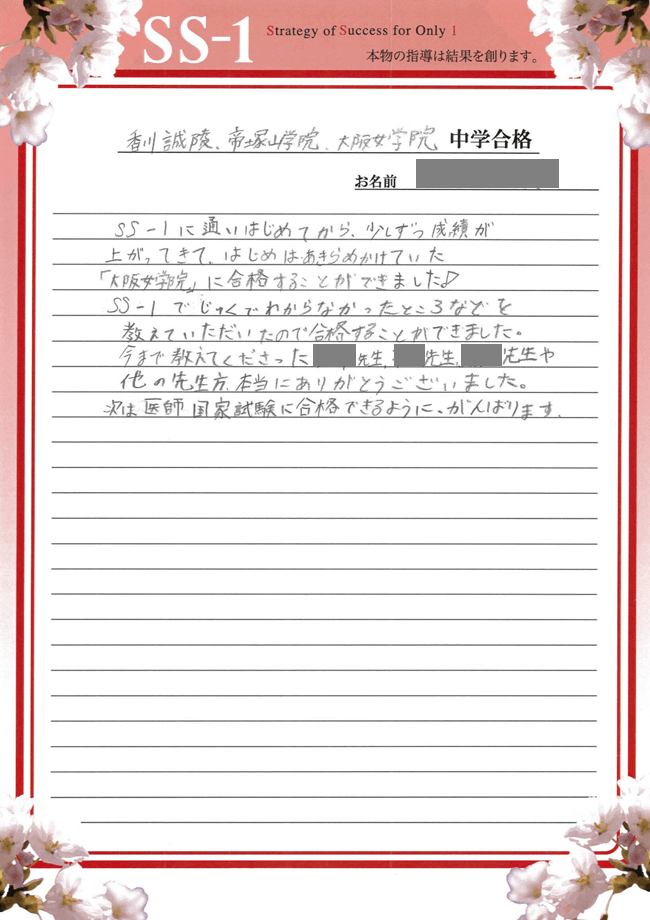 SS-1
Strategy of Success for Only 1
本物の指導は結果を創ります。
香川誠陵、帝塚山学院、大阪女学院 中学合格
お名前
SS-1に通いはじめてから、少しずつ成績が
上がってきて、はじめはあきらめかけていた
「大阪女学院」に合格することができました♪
SS-1でじゅくでわからなかったところなどを
教えていただいたので合格することができました。
今まで教えてくださった 先生、 先生、 先生や
他の先生方、本当にありがとうございました。
次は医師国家試験に合格できるように、がんばります。